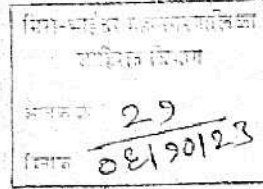 मिरा-भाईंदर महानगरपालिका
विभाग
आवक क्र. २९
दिनांक ०६/१०/२३